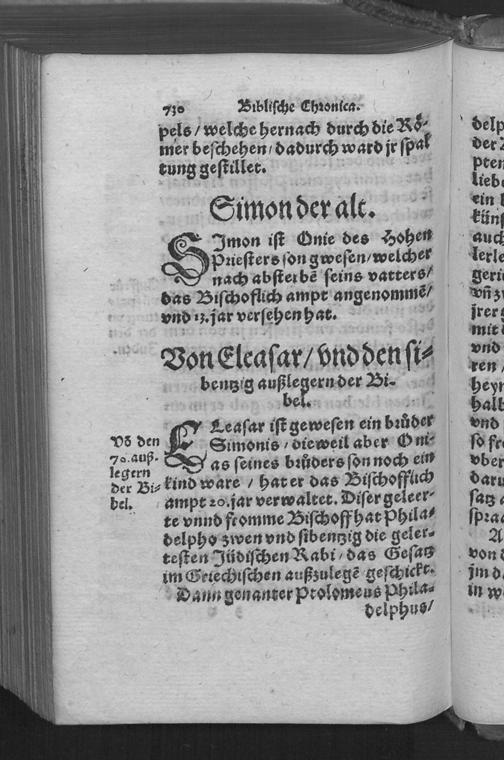 730 Biblische Chronica.
pels / welche hernach durch die Rö-
mer beschehen / dadurch ward jr spal
tung gestillet.
Simon der alt.
SImon ist Onie des Hohen
Priesters son gwesen / welcher
nach absterbē seins vatters /
das Bischoflich ampt angenommē /
vnd 13. jar versehen hat.
Von Eleasar / vnd den si-
bentzig außlegern der Bi-
bel.
Vō den
70. auß-
legern
der Bi-
bel.
ELeasar ist gewesen ein brůder
Simonis / dieweil aber Oni-
as seines brůders son noch ein
kind ware / hat er das Bischofflich
ampt 20. jar verwaltet. Diser geleer-
te vnnd fromme Bischoff hat Phila-
delpho zwen vnd sibentzig die geler-
testen Jüdischen Rabi / das Gesatz
im Griechischen außzulegē geschickt.
Dann genanter Ptolomeus Phila-
delphus /
delp
der
pten
liebe
ein
küns
auch
lerle
geri
vñ
jrer
mit
vnd
ren /
heyr
halb
vnd
so fre
vber
daru
satz
spra
A
von
jm d
in w